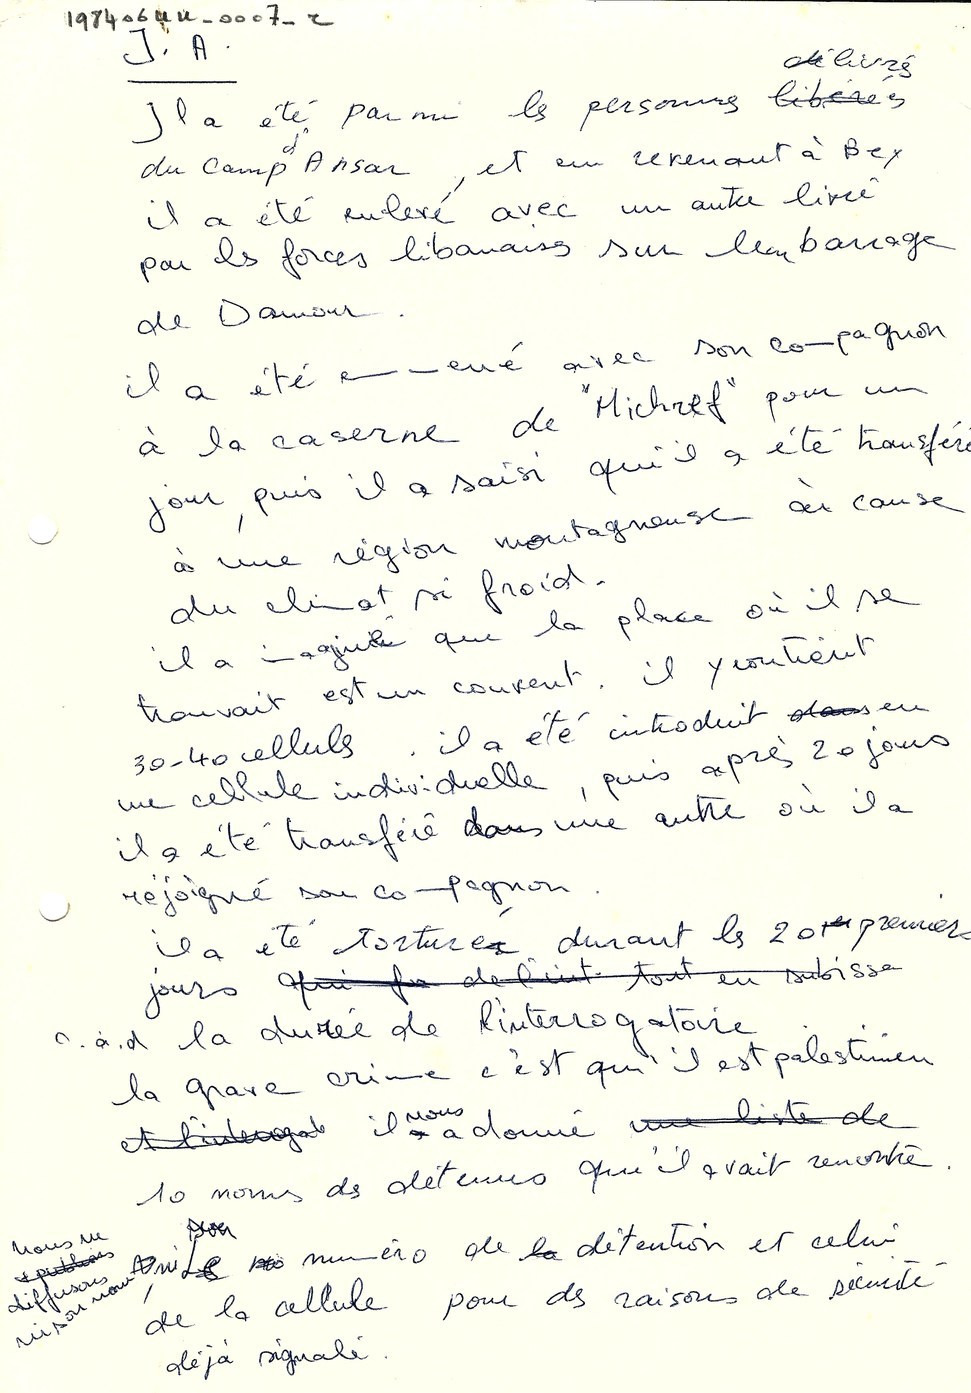 198406UU_0007_r
J. A.
délivrés
Il a été parmi les personnes libérées
du camp d'Ansar, et en revenant à Bey
il a été enlevé avec un autre livré
par les forces libanaises sur leur barrage
de Damour.
il a été emmené avec son compagnon
à la caserne de "Michref" pour un
jour, puis il a saisi qu'il a été transféré
à une région montagneuse à cause
du climat si froid.
il a imaginé que la place où il se
trouvait est un couvent. il y contient
30-40 cellules. il a été introduit dans en
une cellule individuelle, puis après 20 jours
il a été transféré dans une autre où il a
réjoigné son compagnon.
il a été torturé durant les 20 premiers
jours qui fu de l'int. tout en subissa
c.à.d la durée de l'interrogatoire
la grave crime c'est qu'il est palestinien
et l'interrogat il nous a donné une liste de
10 noms des détenus qu'il avait rencontré.
son
nous ne
publions
diffusons
ni son nom
ni le no numéro de la détention et celui
de la cellule pour des raisons de sécurité
déjà signalé.